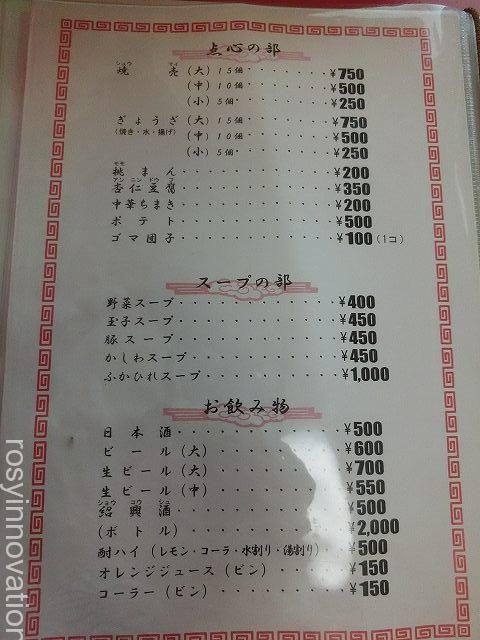 点心の部
焼売(大)15個・・・・・・・・¥750
ショウ マイ
(中)10個・・・・・・・・¥500
(小)5個・・・・・・・・¥250
ぎょうざ(大)15個・・・・・・・・¥750
(焼き・水・揚げ)(中)10個・・・・・・・・¥500
(小)5個・・・・・・・・¥250
モモ
桃まん・・・・・・・・・・・・¥200
アンニンドウフ
杏仁豆腐・・・・・・・・・・・・¥350
中華ちまき・・・・・・・・・・・・¥200
ポテト・・・・・・・・・・・・¥500
ゴマ団子・・・・・・・・・・・・¥100(1コ)
スープの部
野菜スープ・・・・・・・・・・・・¥400
玉子スープ・・・・・・・・・・・・¥450
豚スープ・・・・・・・・・・・・¥450
かしわスープ・・・・・・・・・・・¥450
ふかひれスープ・・・・・・・・・・¥1,000
お飲み物
日本酒・・・・・・・・・・・・¥500
ビール(大)・・・・・・・・・・・¥600
生ビール(大)・・・・・・・・・・・¥700
生ビール(中)・・・・・・・・・・・¥550
ショウコウシュ
紹興酒・・・・・・・・・・・・¥500
(ボトル)・・・・・・・・・・・・¥2,000
酎ハイ(レモン・コーラ・水割り・湯割り)・・¥500
オレンジジュース(ビン)・・・・・・¥150
コーラー(ビン)・・・・・・・・・・¥150
rosyinnovation